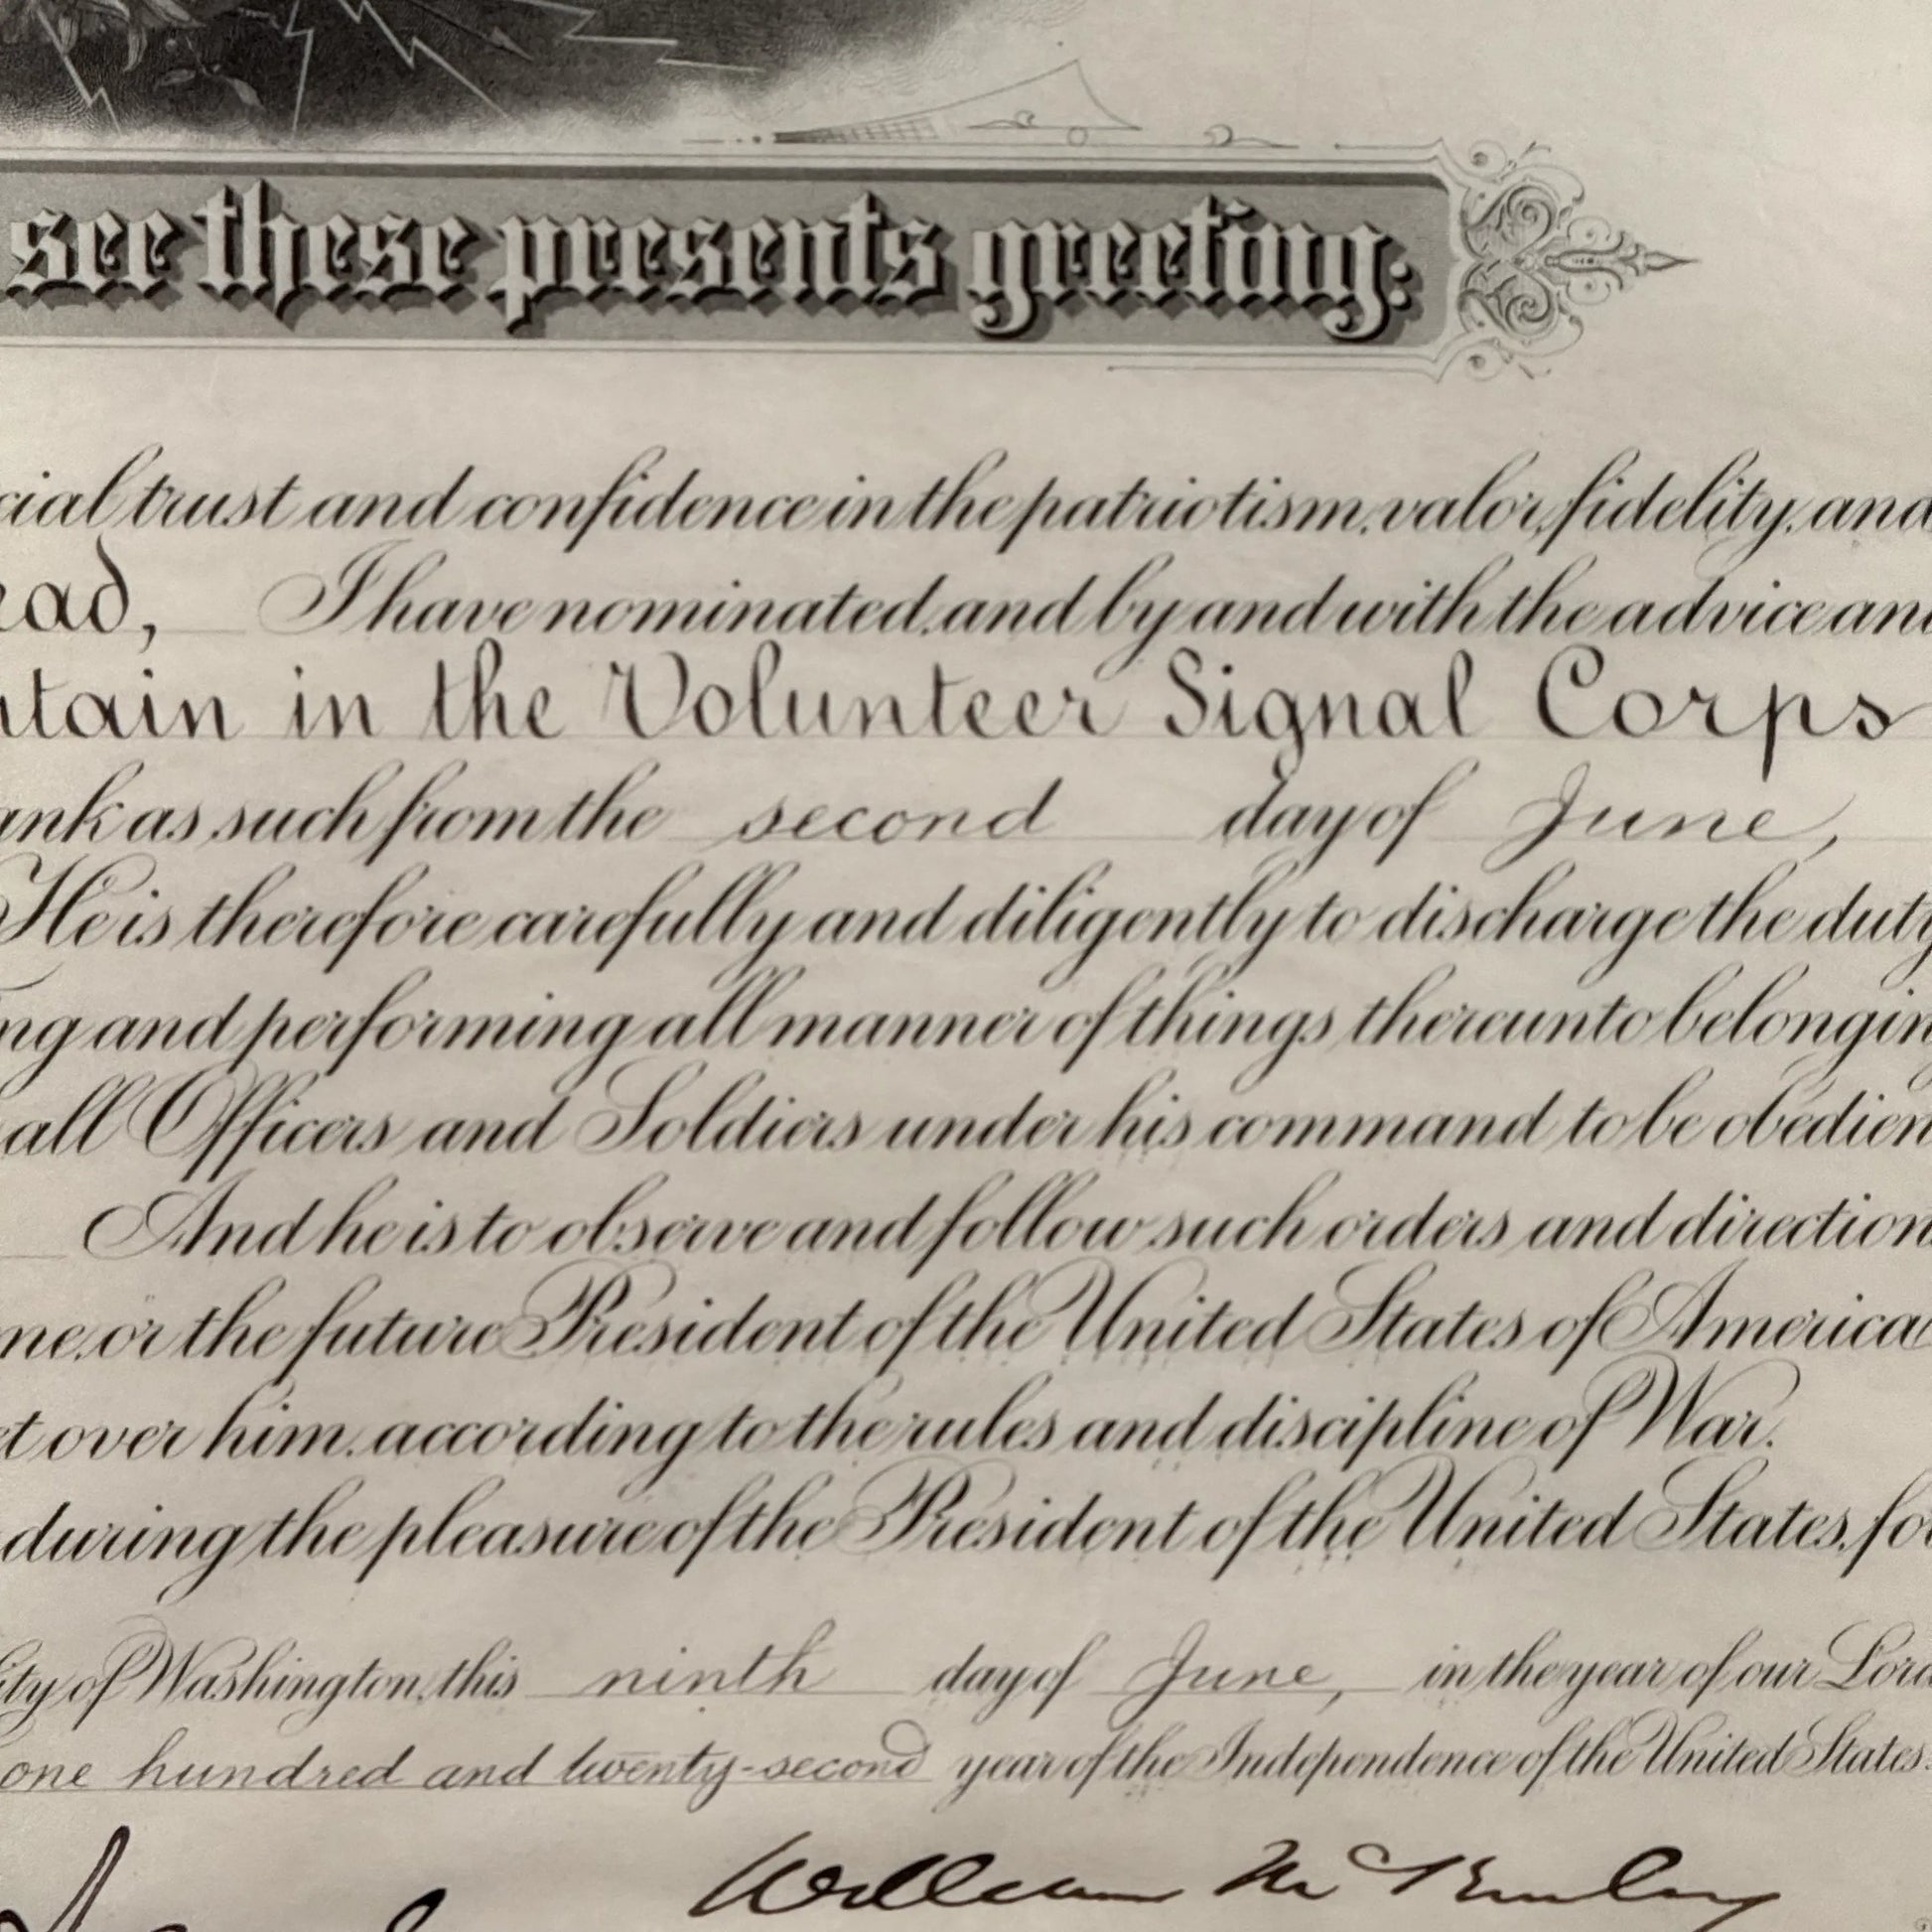 see these presents greeting:
cial trust and confidence in the patriotism, valor, fidelity, and
ead, I have nominated, and by and with the advice and
ptain in the Volunteer Signal Corps
ank as such from the second day of June,
He is therefore carefully and diligently to discharge the duty
ng and performing all manner of things thereunto belonging
all Officers and Soldiers under his command to be obedien
And he is to observe and follow such orders and direction
me, or the future President of the United States of America
et over him, according to the rules and discipline of War.
during the pleasure of the President of the United States, fo
ity of Washington, this ninth day of June, in the year of our Lord
one hundred and twenty-second year of the Independence of the United States.
William McKinley